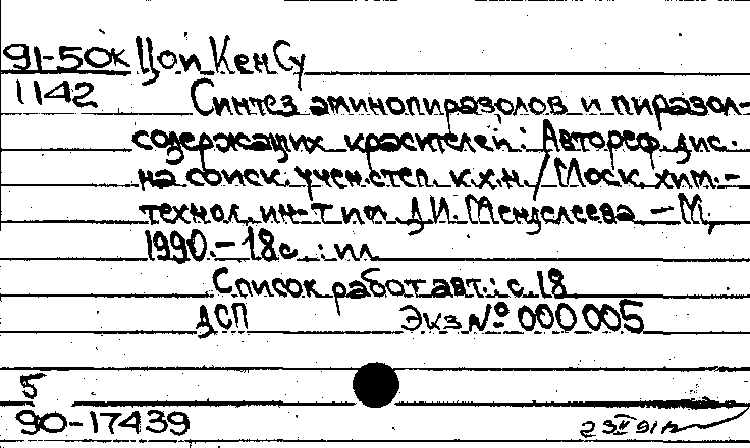 91-50к Цой Кен Су
1142
Синтез аминопиразолов и пиразол-
содержащих красителей : Автореф. дис.
на соиск. учен. степ. к.х.н. / Моск. хим.-
технол. ин-т им. Д.И. Менделеева – М.,
1990. – 18с. : ил
Список работ авт.: с. 18
ДСП Экз № 000005
90-17439